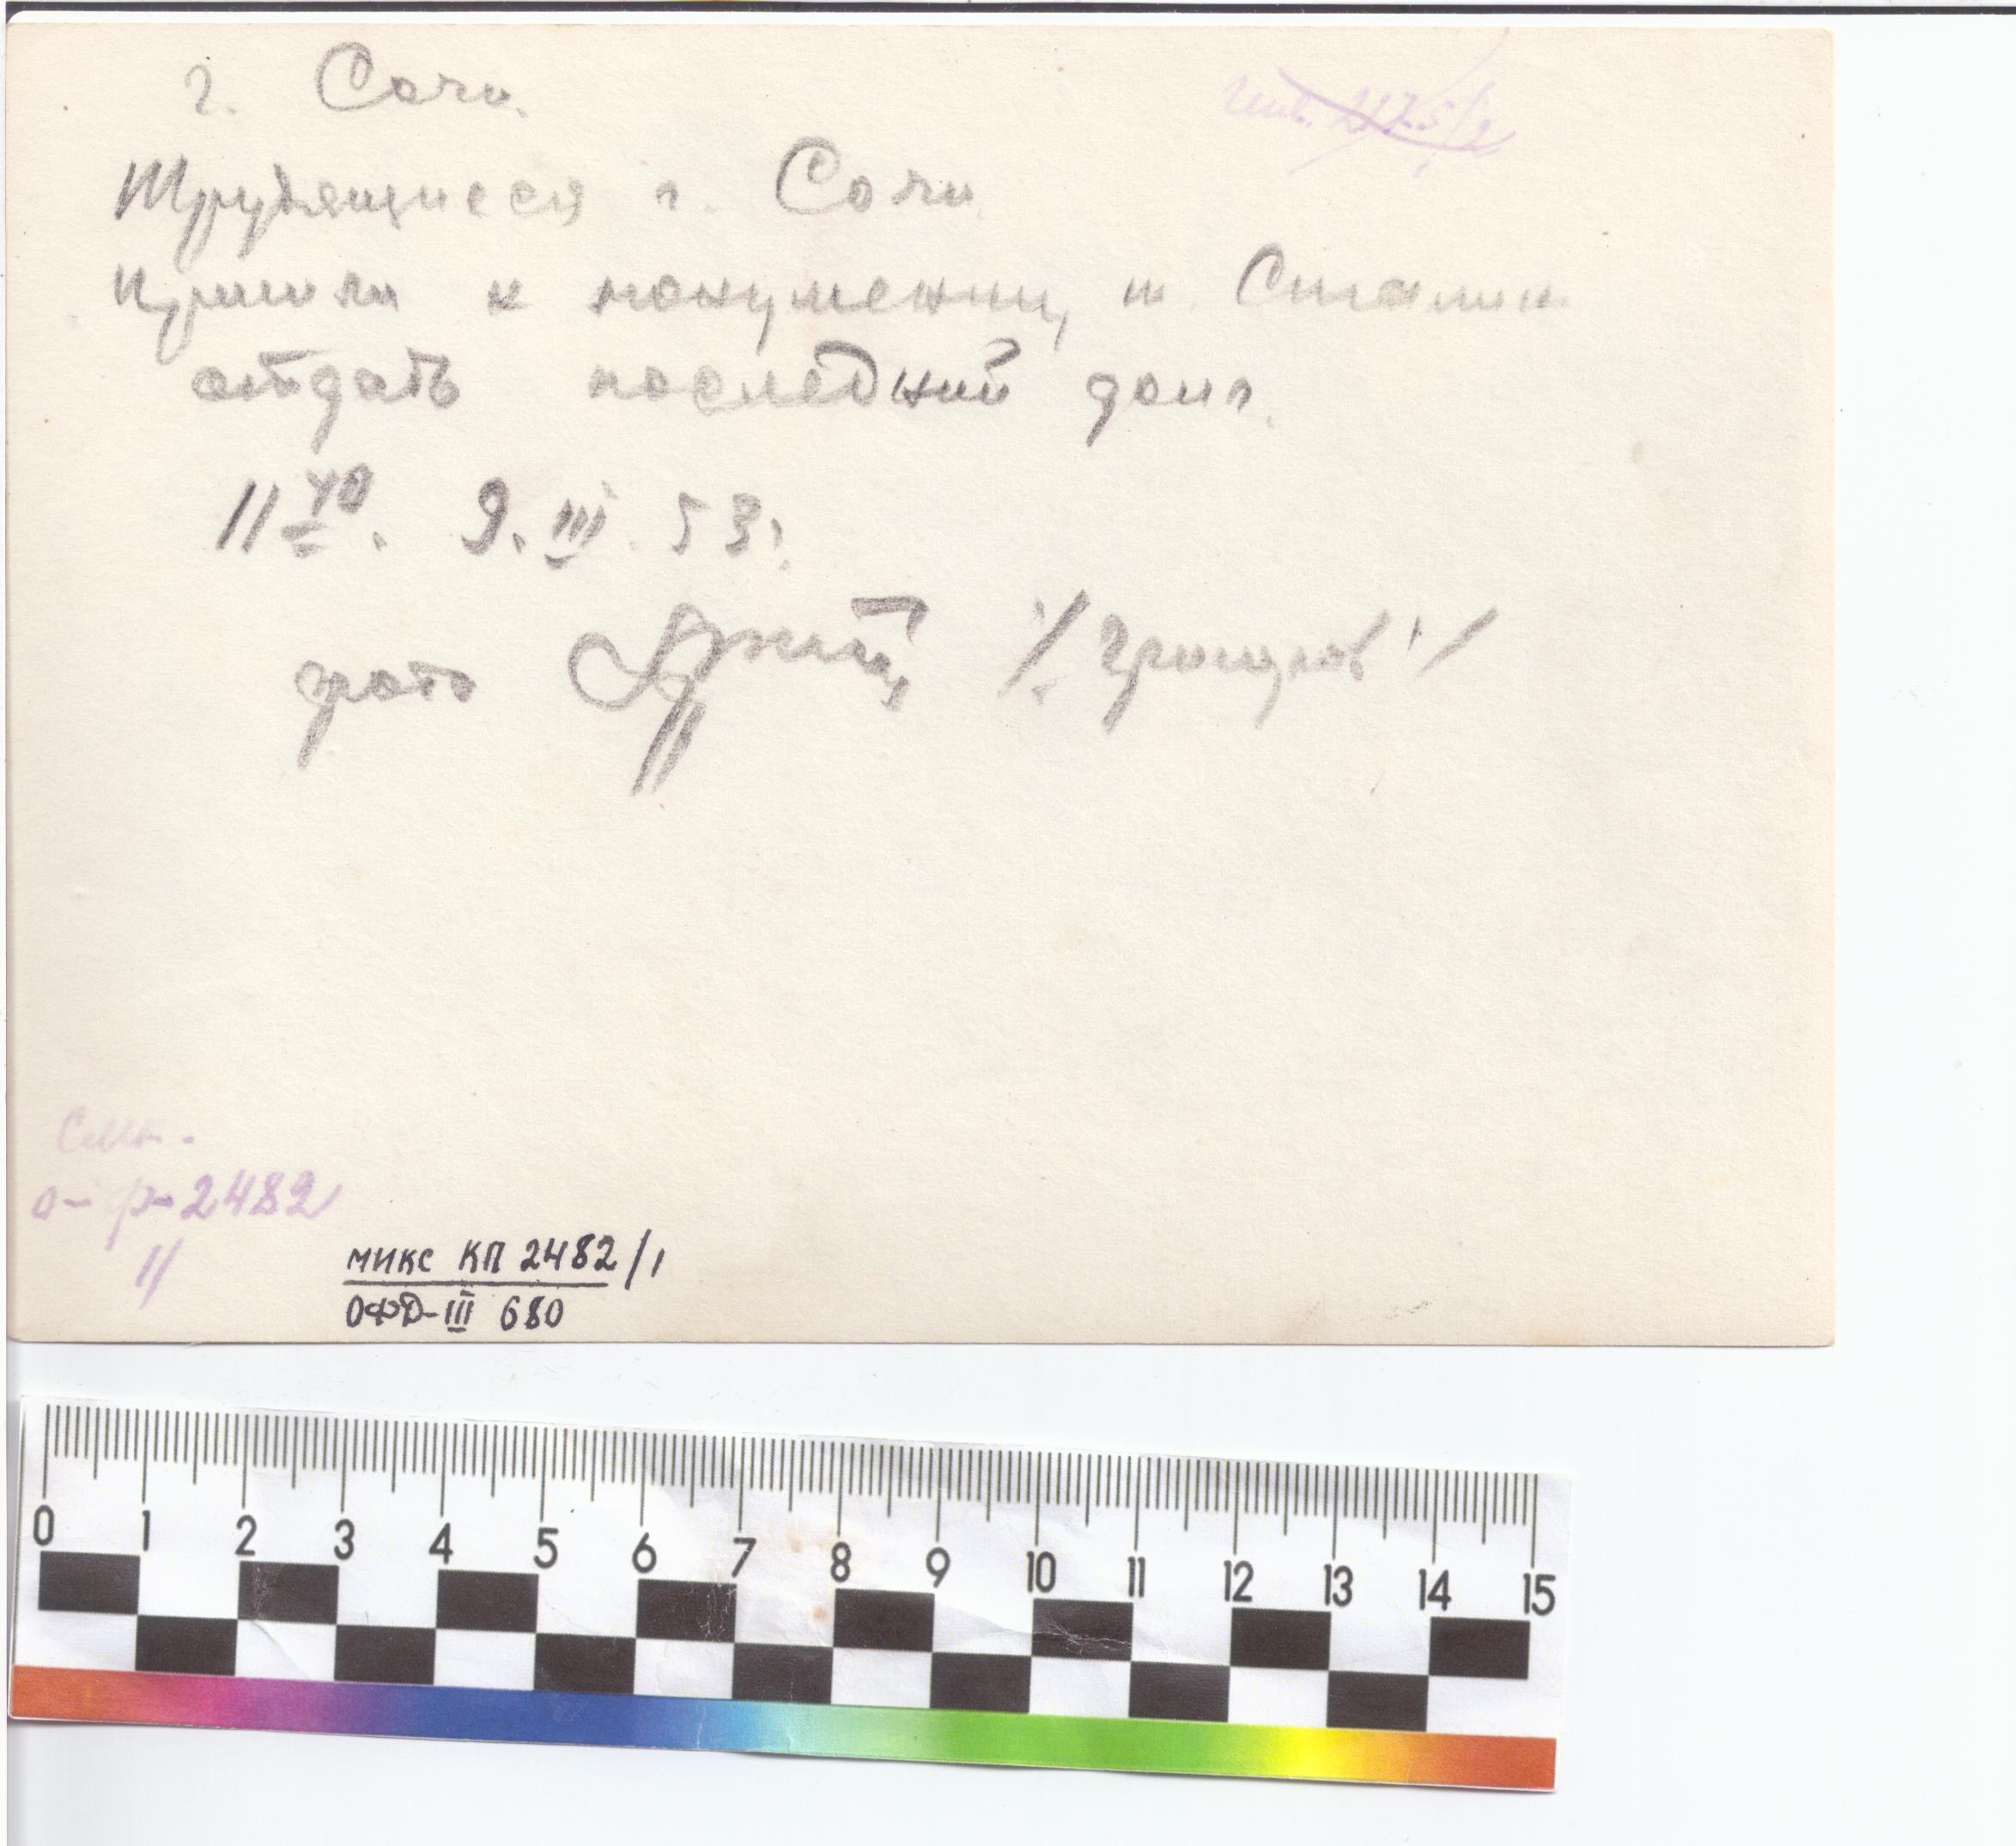 г. Сочи.
инв. 2175/2
Трудящиеся г. Сочи
пришли к монументу т. Сталин
отдать последний долг.
11 40. 9. III. 53г.
фото /Григоров/
о-р-2482
11
МИКС КП 2482/1
ОФД-III 680
0 1 2 3 4 5 6 7 8 9 10 11 12 13 14 15